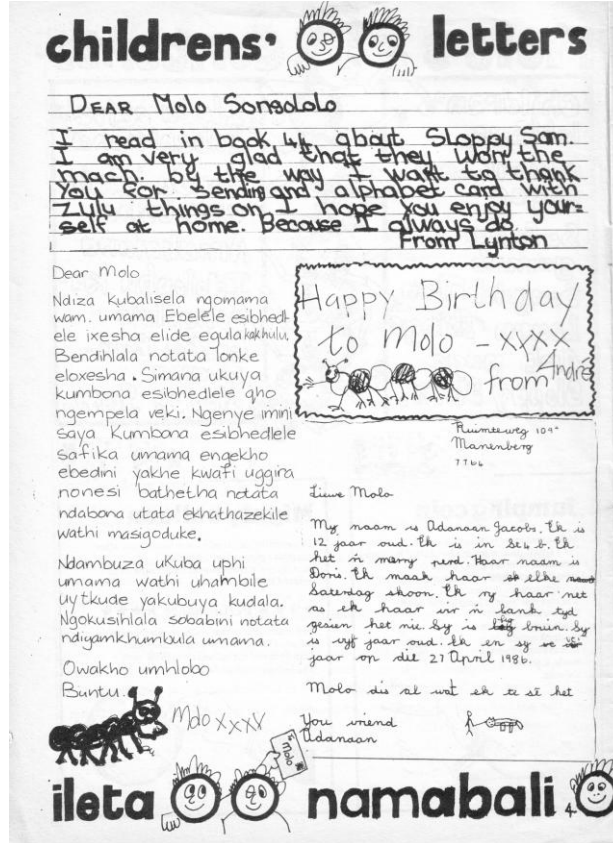 childrens' letters
DEAR Molo Songololo
I read in book 44 about Sloppy Sam.
I am very glad that they won the
mach. by the way I want to thank
You for sending and alphabet card with
zulu things on I hope you enjoy your=
self at home. Because I always do
From Lynton
Dear Molo
Ndiza kubalisela ngomama
wam. umama Ebelele esibhedl
ele ixesha elide egula kakhulu.
Bendihlala notata lonke
eloxesha. Simana ukuya
kumbona esibhedlele qho
ngempela veki. Ngenye imini
saya Kumbona esibhedlele
safika umama engekho
ebedini yakhe kwafi uggira
nonesi bathetha notata
ndabona utata ekhathazekile
wathi masigoduke.
Ndambuza uKuba uphi
umama wathi uhambile
uytkude yakubuya kudala.
Ngokusihlala sobabini notata
ndiyamkhumbula umama.
Owakho umhlobo
Buntu.
Molo xxxx
Happy Birthday
to Molo - xyxx
from André
Ruimteweg 109
Manenberg
7764
Liewe Molo
My naam is Adanaan Jacobs. Ek is
12 jaar oud. Ek is in St 4 b. Ek
het 'n merry perd. Haar naam is
Doris. Ek maak haar elke
Saterdag skoon. Ek ry haar net
as ek haar vir 'n lank tyd
gesien het nie. Sy is bruin. Sy
is vyf jaar oud. Ek en sy ve
jaar op die 27 April 1986.
Molo dis al wat ek te sê het
You vriend
Adanaan
Molo
ileta namabali
4